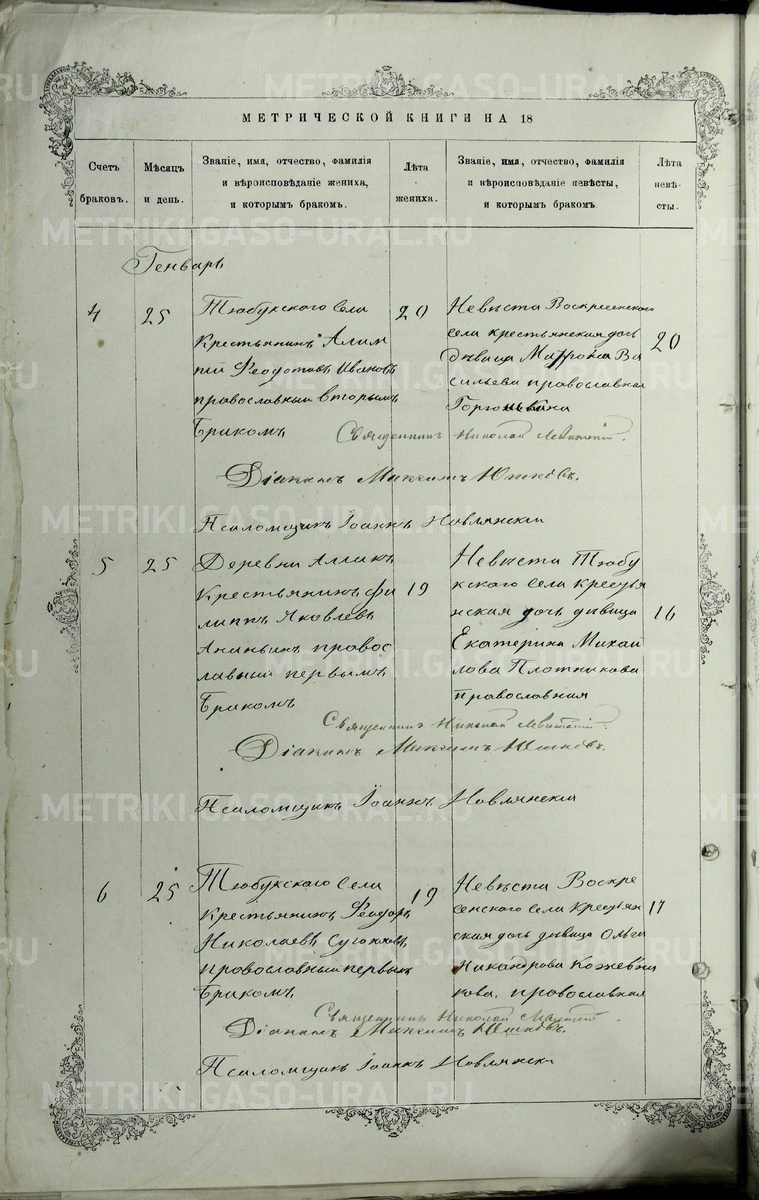 МЕТРИЧЕСКОЙ КНИГИ НА 18
Счетъ браковъ.
Мѣсяцъ и день.
Званіе, имя, отчество, фамилія
и вѣроисповѣданіе жениха,
и которымъ бракомъ.
Лѣта жениха.
Званіе, имя, отчество, фамилія
и вѣроисповѣданіе невѣсты,
и которымъ бракомъ
Лѣта невѣсты.
Генварь
4
25
Тюбукского Села
Крестьянинъ Алим
пій Феодотовъ Ивановъ
православный вторымъ
Бракомъ
20
Невѣста Воскресенского
села крестьянская дочь
дѣвица Матрона Ва
сильева православная
20
Священникъ Николай
Діаконъ Максимъ Юшковъ.
Псаломщикъ Іоаннъ Новлянскій
5
25
Деревни Аллакъ
Крестьянинъ Фи
липпъ Яковлевъ
Ананьинъ правос
лавный первымъ
Бракомъ
19
Невѣста Тюбу
кского Села крестья
нская дочь дѣвица
Екатерина Михаи
лова Плотникова
православная
16
Священникъ Николай
Діаконъ Максимъ Юшковъ.
Псаломщикъ Іоаннъ Новлянскій
6
25
Тюбукского Села
Крестьянинъ Феодоръ
Николаевъ
православный первымъ
Бракомъ
19
Невѣста Воскре
сенского села крестьян
ская дочь дѣвица Ольга
Никандрова Кожевни
кова, православная
17
Священникъ Николай
Діаконъ Максимъ Юшковъ.
Псаломщикъ Іоаннъ Новлянскій
METRIKI.GASO-URAL.RU